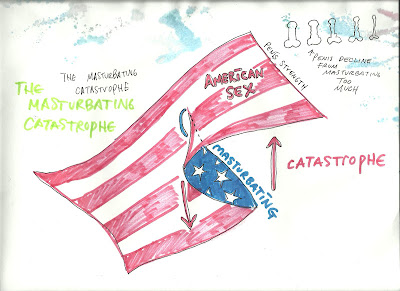 THE MASTURBATING
CATASTROPHE
THE
MASTURBATING
CATASTROPHE
AMERICAN
SEX
PENIS STRENGTH
PENIS DECLINE
FROM
MASTURBATING
TOO
MUCH
MASTURBATING
CATASTROPHE